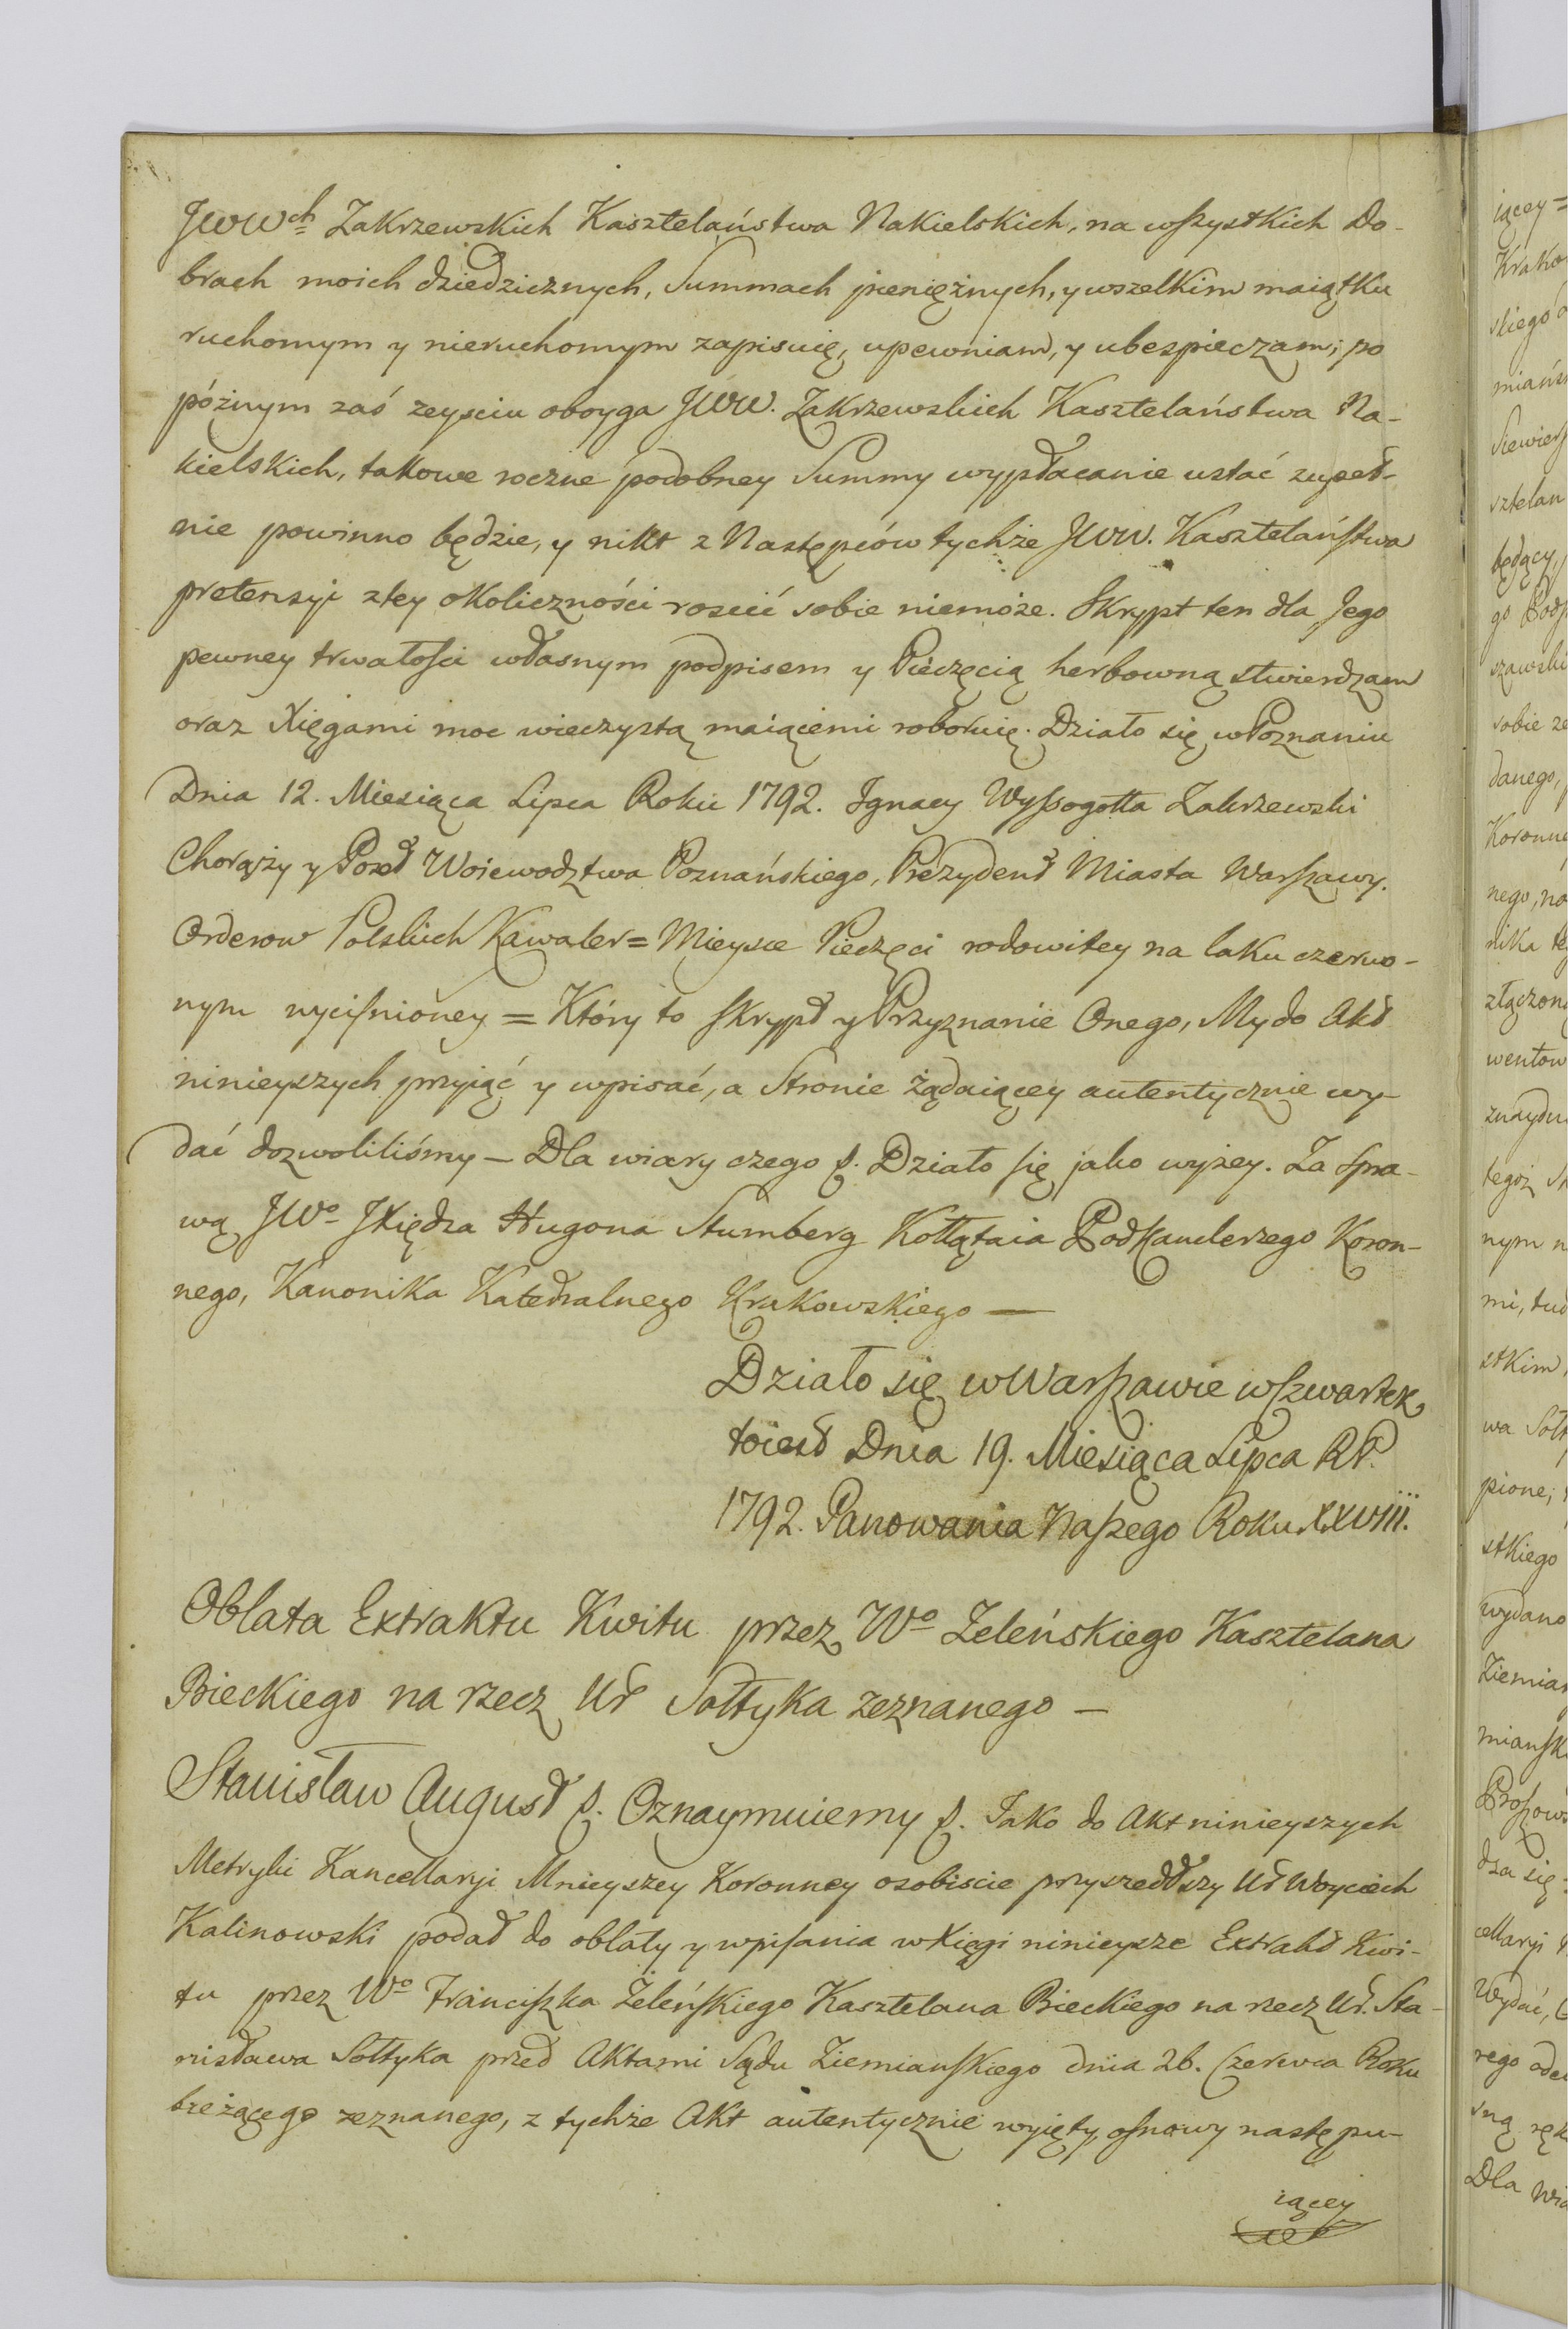 JWW<sup>ch</sup> Zakrzewskich Kasztelaństwa Nakielskich, na wszystkich Do-
brach moich dziedzicznych, Summach pieniężnych, y wszelkim maiątku
ruchomym y nieruchomym zapisuię, upewniam, y ubezpieczam; po
póżnym zaś zeysciu oboyga JWW. Zakrzewskich Kasztelaństwa Na-
kielskich, takowe roczne podobney Summy wypłacanie ustać zupeł-
nie powinno będzie, y nikt z Następców tychże JWW. Kasztelaństwa
pretensyi z tey okoliczności roscić sobie niemoże. Skrypt ten dla Jego
pewney trwałości własnym podpisem y Pieczęcią herbowną stwierdzam
oraz Xięgami moc wieczystą maiącemi roboruię. Działo się w Poznaniu
Dnia 12. Miesiąca Lipca Roku 1792. Ignacy Wyssogotta Zakrzewski
Chorąży y Poseł Woiewodztwa Poznańskiego, Prezydent Miasta Warszawy.
Orderow Polskich Kawaler = Mieysce Pieczęci rodowitey na laku czerwo-
nym wyciśnioney = Który to skrypt y Przyznanie Onego, My do Akt
ninieyszych przyiąć y wpisać, a Stronie żądaiącey autentycznie wy-
dać dozwoliliśmy — Dla wiary czego p. Działo się jako wyżey. Za Spra-
wą JW<sup>o</sup> JXiędza Hugona Stumberg Kołłątaia Podkanclerzego Koron-
nego, Kanonika Katedralnego Krakowskiego —
Działo się w Warszawie w Czwartek
toiest Dnia 19. Miesiąca Lipca RP.
1792. Panowania Naszego Roku XXVIII.
Oblata Extraktu Kwitu przez W<sup>o</sup> Zeleńskiego Kasztelana
Bieckiego na rzecz Ur Sołtyka zeznanego —
Stanisław August p. Oznaymuiemy p. Jako do Akt ninieyszych
Metryki Kancellaryi Mnieyszey Koronney osobiscie przyszedłszy Ur Woyciech
Kalinowski podał do oblaty y wpisania w Xięgi ninieysze Extrakt Kwi-
tu przez W<sup>o</sup> Franciszka Żeleńskiego Kasztelana Bieckiego na rzecz Ur. Sta-
nisława Sołtyka przed Aktami Sądu Ziemianskiego dnia 26. Czerwca Roku
bieżącego zeznanego, z tychże Akt autentycznie wyięty, osnowy następu-
iącey